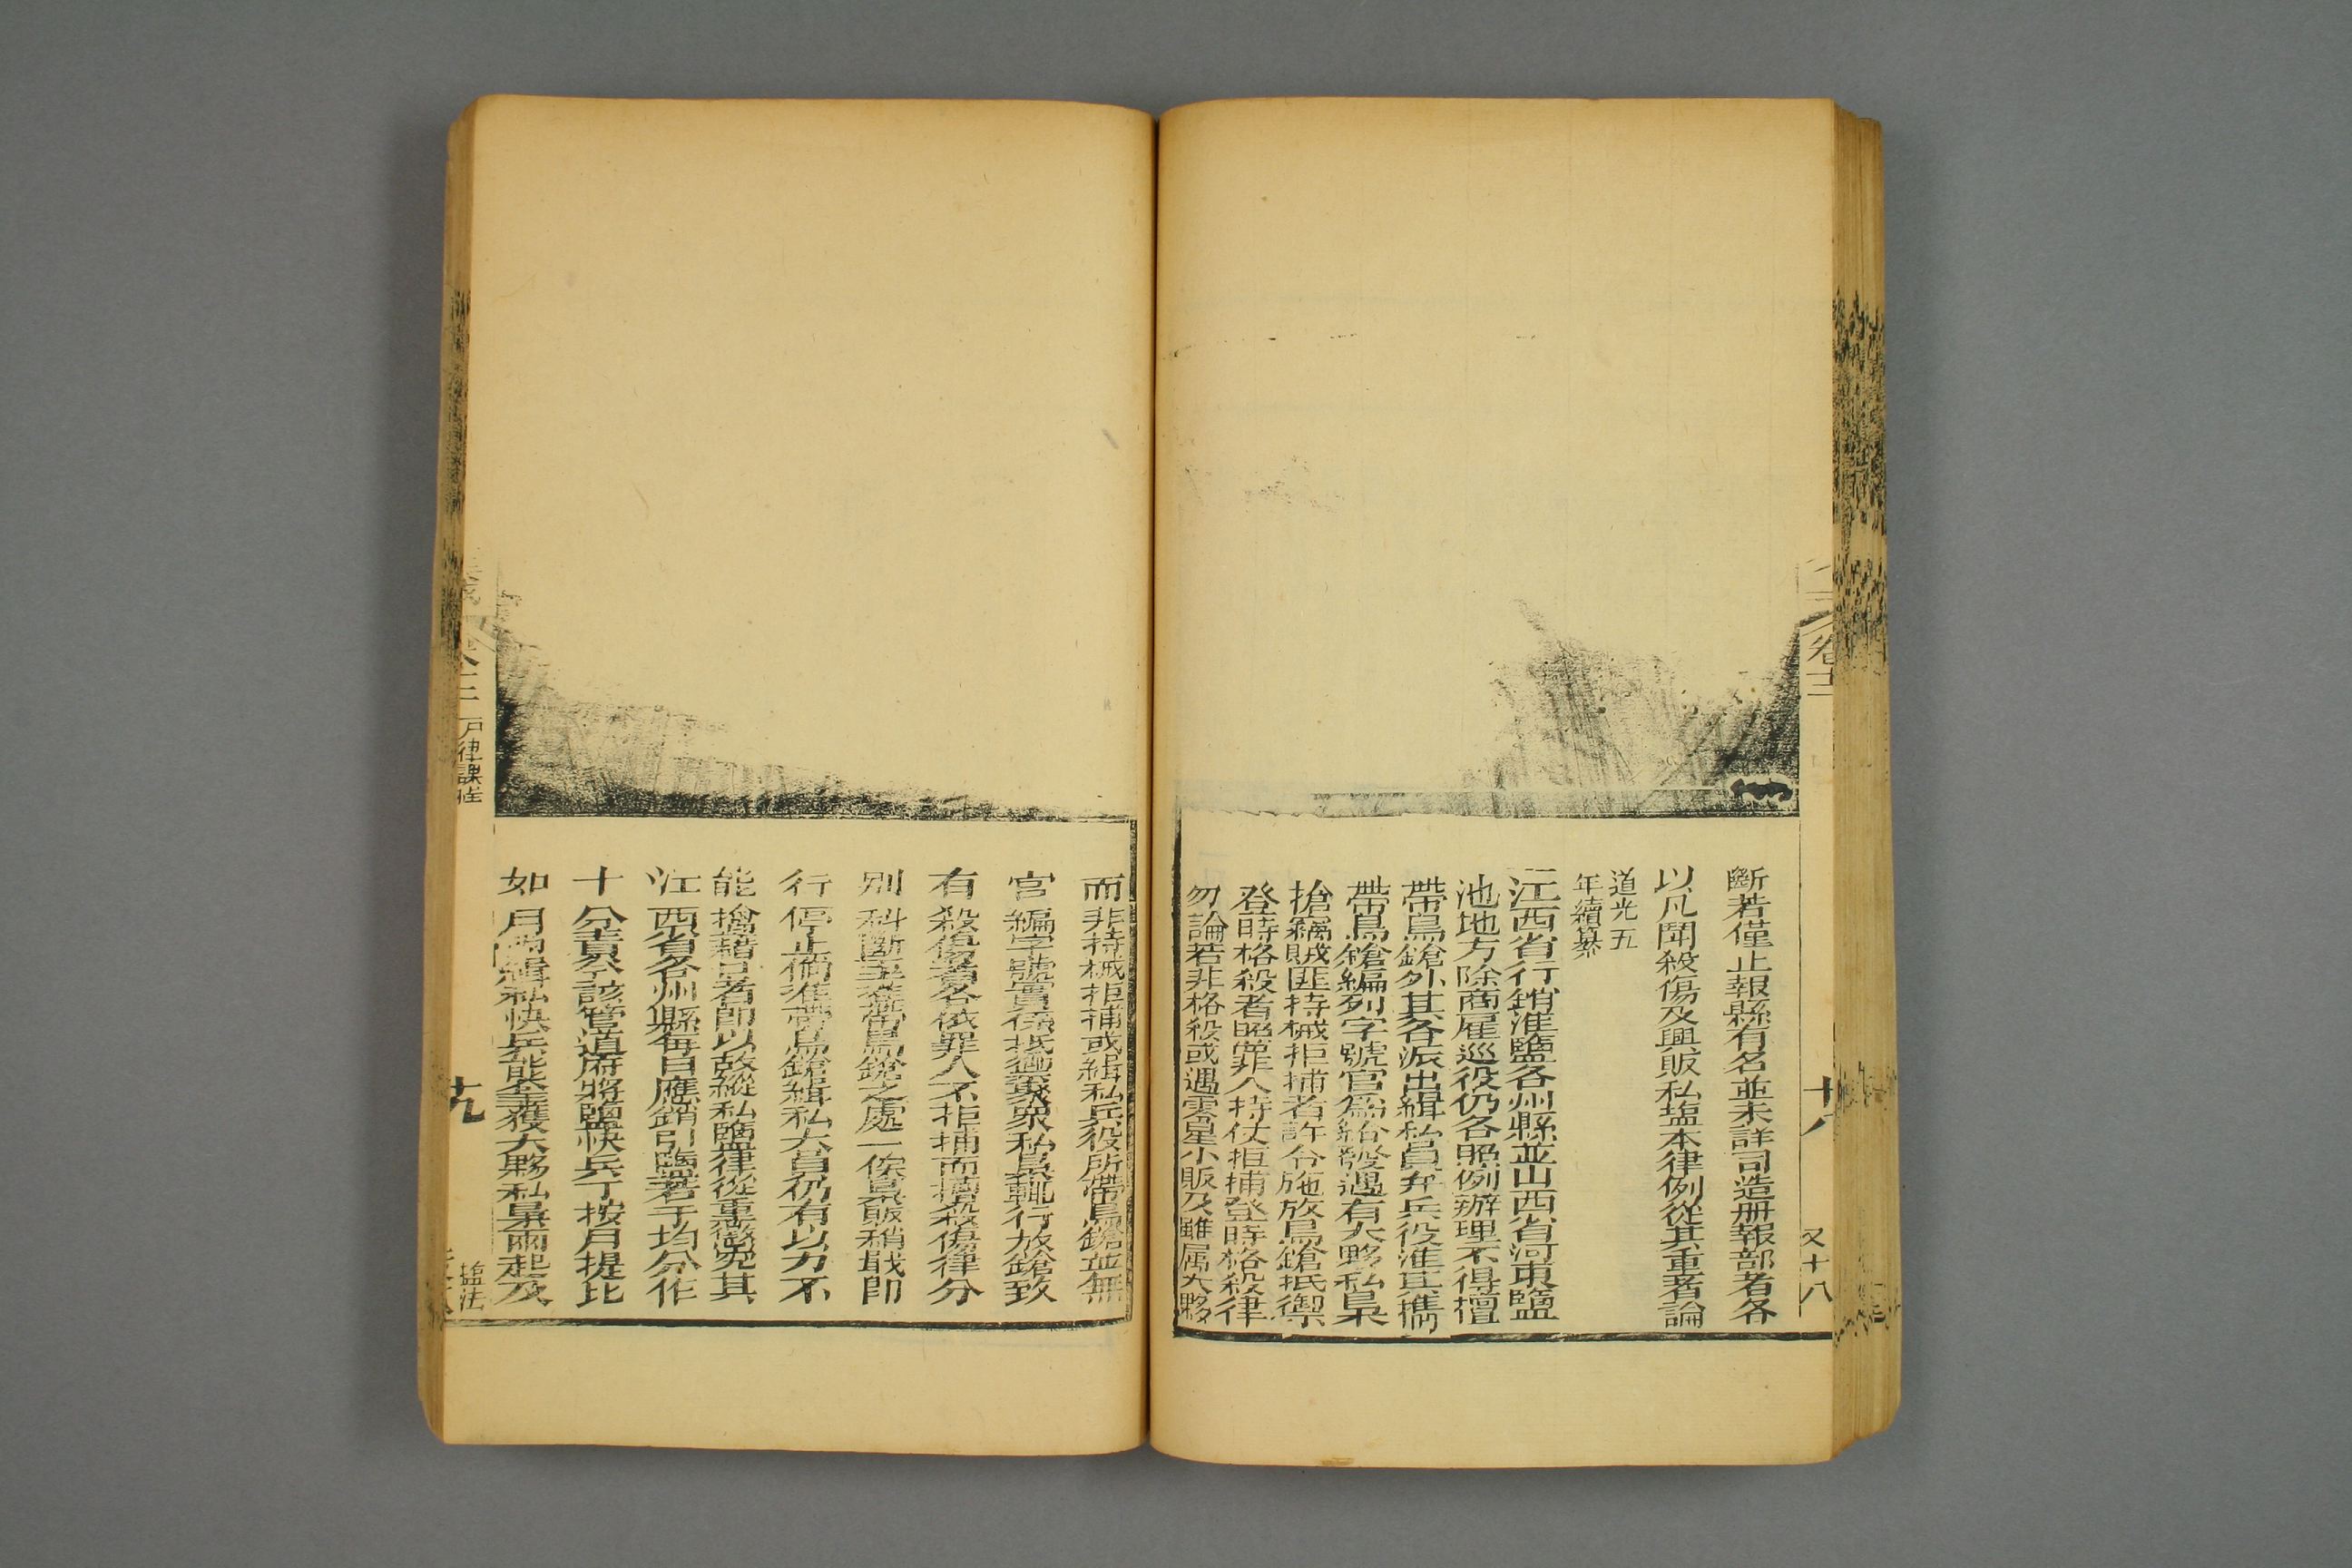 卷十二
十八
又十八
斷若僅止報縣有名並未詳司造册報部者各
以凡鬪殺傷及興販私塩本律例從其重者論
道光五
年續纂
一江西省行銷淮鹽各州縣並山西省河東鹽
池地方除商雇巡役仍各照例辦理不得擅
帶鳥鎗外其各派出緝私員弁兵役准其攜
帶鳥鎗編列字號官爲給發遇有大夥私梟
搶竊賊匪持械拒捕者許令施放鳥鎗抵禦
登時格殺者照罪人持仗拒捕登時格殺律
勿論若非格殺或遇零星小販及雖属大夥
而非持械拒捕或緝私兵役所帶鳥鎗並無
官編字號實係抵禦夥衆私梟輒行放鎗致
有殺傷者各依罪人不拒捕而擅殺傷律分
別科斷至准帶鳥鎗之處一俟梟販稍戢卽
行停止倘准帶鳥鎗緝私大員仍有以力不
能擒藉口者卽以故縱私鹽律從重懲究其
江西省各州縣每月應銷引鹽若干均分作
十分責令該管道府將鹽快兵丁按月提比
如月內緝私快兵能全獲大夥私梟兩起及
戶律課程
十九
塩法